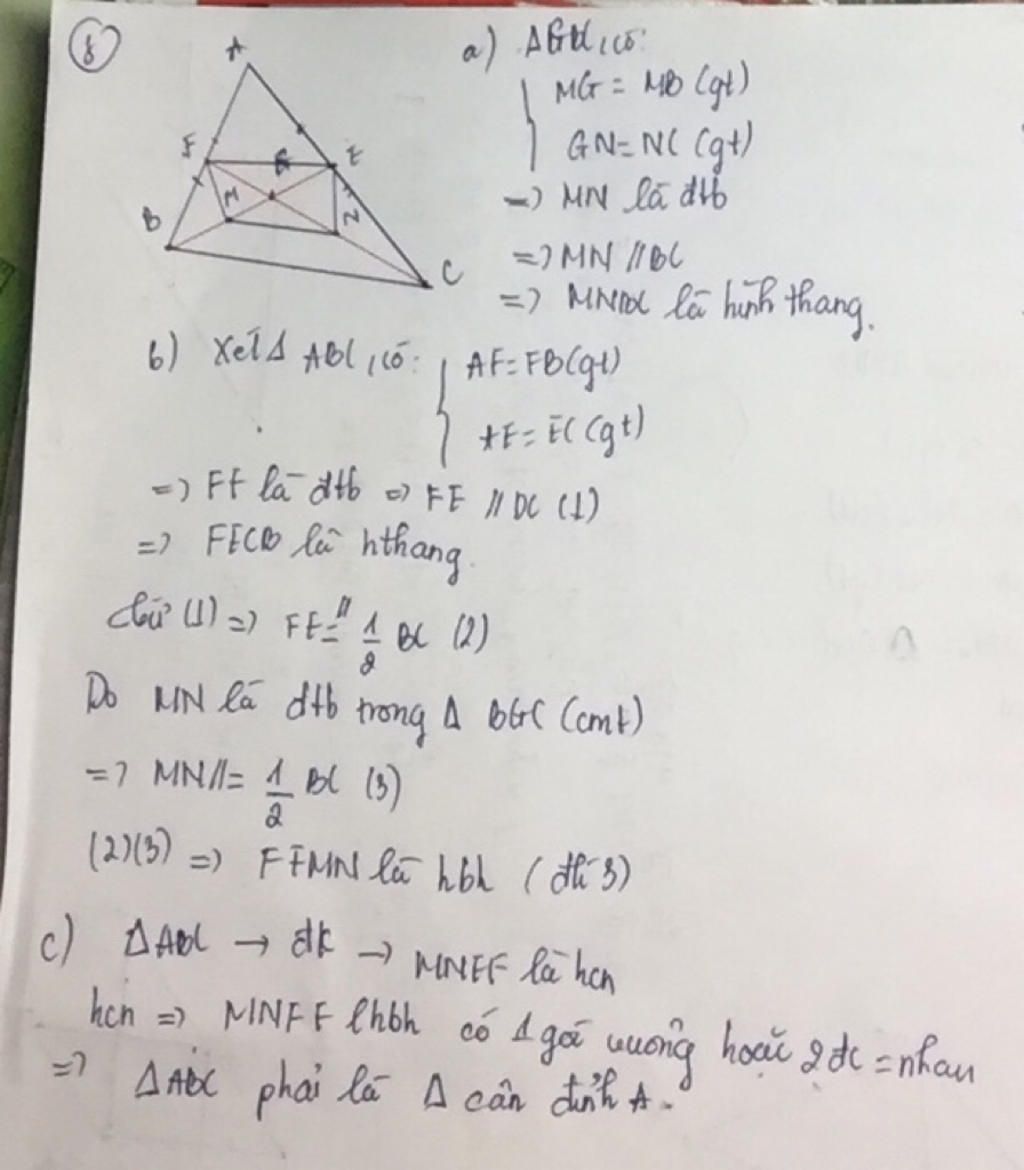 8
A
F
E
G
M
N
B
C
a) ΔGBC, có:
MG = MB (gt)
GN = NC (gt)
=> MN là đtb
=> MN // BC
=> MNBC là hình thang.
b) Xét Δ ABC, có:
AF = FB (gt)
AE = EC (gt)
=> FE là đtb => FE // BC (1)
=> FECB là hthang.
Từ (1) => FE //= 1/2 BC (2)
Do MN là đtb trong Δ BGC (cmt)
=> MN //= 1/2 BC (3)
(2)(3) => FEMN là hbh (đlí 3)
c) ΔABC → đk → MNEF là hcn
hcn => MNEF là hbh có 1 góc vuông hoặc 2 đc = nhau
=> ΔABC phải là Δ cân đỉnh A.